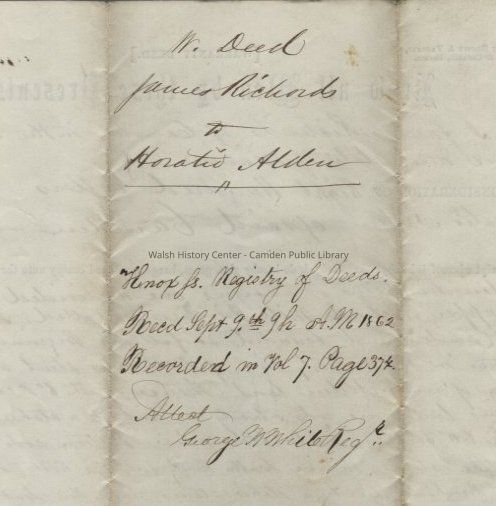 W. Deed
James Richards
to
Horatio Alden
Walsh History Center - Camden Public Library
Knox ss. Registry of Deeds.
Recd Sept 9th 9h A.M 1862
Recorded in Vol 7. Page 374.
Attest
George W White Regr.